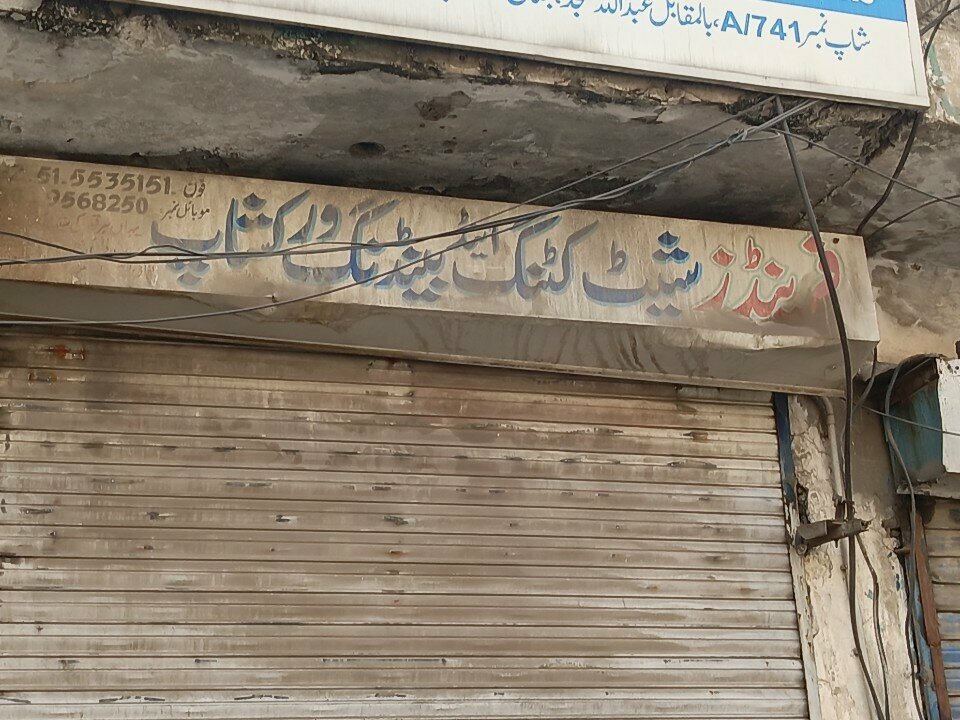 شاپ نمبر A/741، بالمقابل عبداللہ مسجد،
فرینڈز شیٹ کٹنگ اینڈ بینڈنگ ورکشاپ
فون 51.5535151
موبائل نمبر 9568250